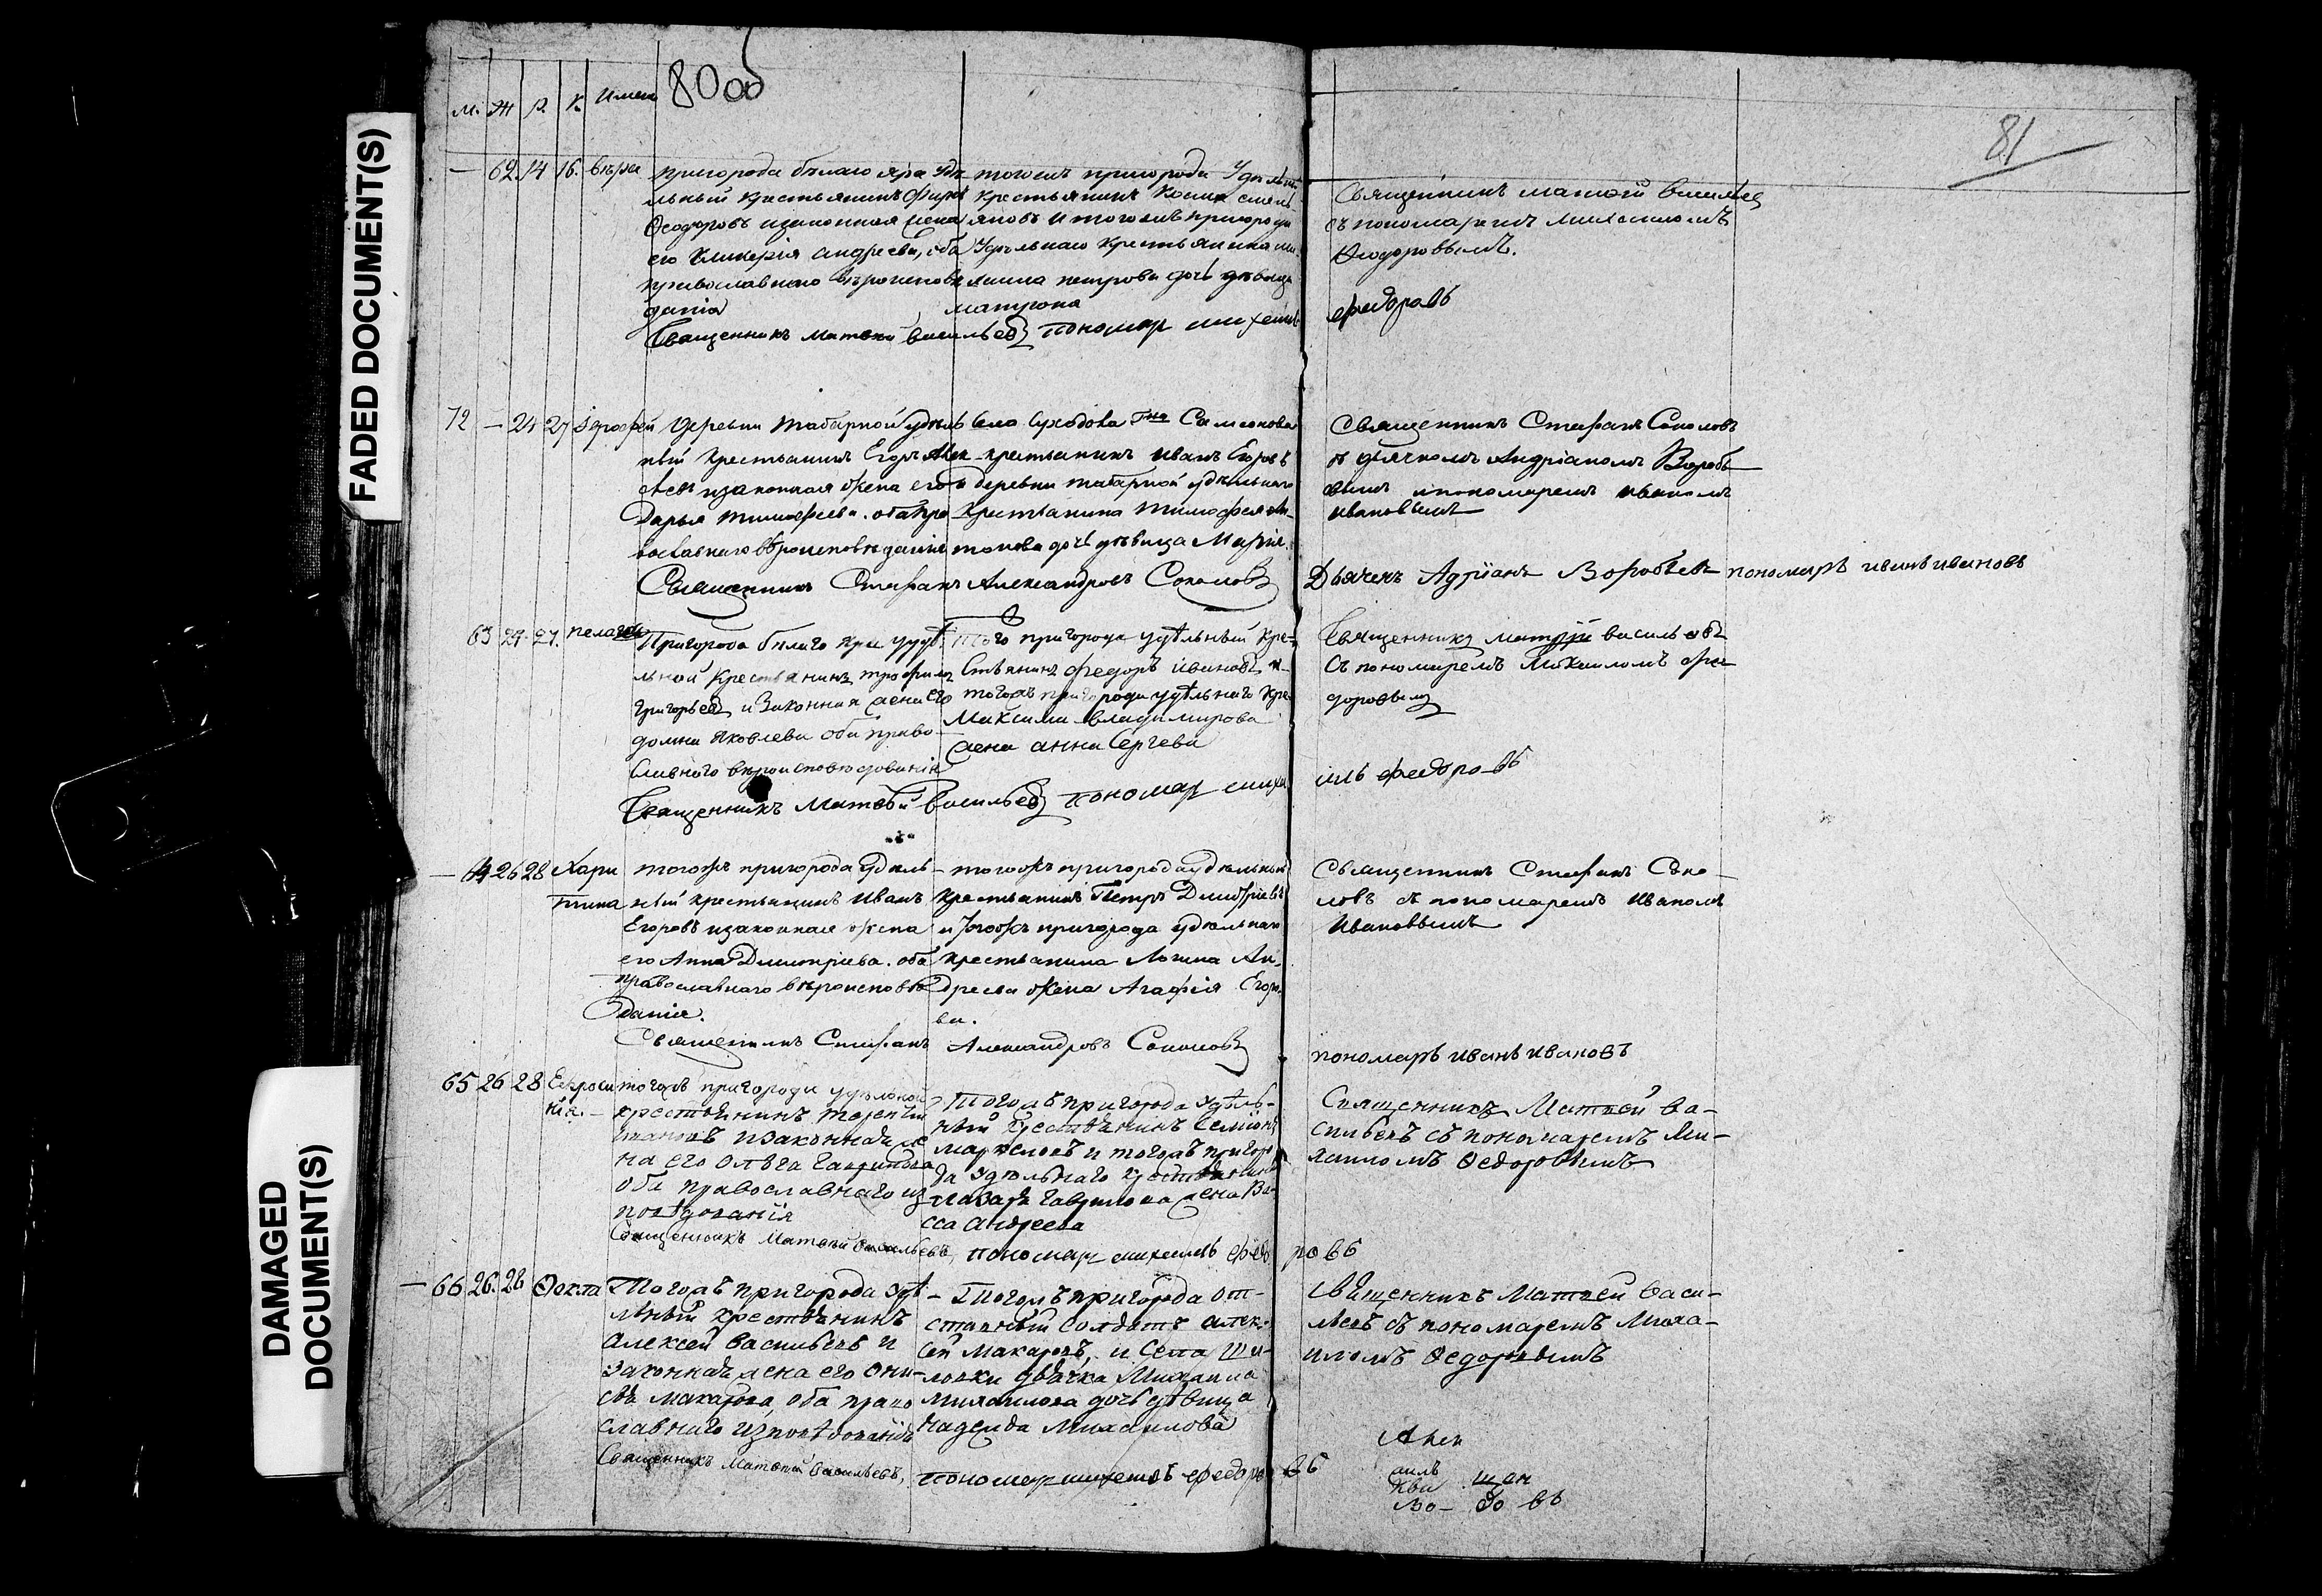 FADED DOCUMENT(S)
DAMAGED DOCUMENT(S)
м. ж р. к. имена 80 об
81
— 62 14 16. вѣра
пригорода бѣлаго яра удѣ
льный крестьянинъ
Ѳеодоровъ и законная жена
его Гликерія андреева, оба
православнаго вѣроисповѣ
данія
тогожъ пригорода Удѣльн
крестьянинъ Косма
и тогожъ пригорода
Удѣльнаго крестьянина
петрова дочь дѣвица
матрона
Священникъ матвей васильев
съ пономаремъ михаиломъ
Ѳеодоровымъ.
Священникъ матвей васильевъ пономар михаилъ федоровъ
72 — 24 27 Іерофей
деревни табарной удѣль
ный крестьянинъ Егоръ
и законная жена его
Дарья тимофеева. оба пра
вославнаго вѣроисповѣданія
села Суходола Гна Самсонова
крестьянинъ иванъ Егоровъ
и деревни табарной удѣльнаго
крестьянина тимофея Ан
тонова дочь дѣвица Марія.
Священникъ Стефанъ Соколовъ
съ дьячкомъ Андріаномъ Воробь
евымъ и пономаремъ иваномъ
ивановымъ
Священникъ Стефанъ Александровъ Соколовъ Дьячекъ Адріанъ Воробьевъ пономаръ иванъ ивановъ
63 24. 27. пелагея
Пригорода бѣлаго яра удѣ
льной крестьянинъ трофимъ
григорьевъ и Законная жена его
домна яковлева оба право
славного вѣроисповѣдованія
Того пригорода удѣльный кре-
стьянинъ федоръ ивановъ и
тогожъ пригорода удѣльнаго кре
максима владимирова
жена анна Сергеева
Священникъ матвѣй васильевъ
съ пономаремъ михаиломъ фе
доровымъ
Священникъ Матвѣй Васильевъ пономар михаилъ федоровъ
— 64 26 28 Хари
тина
тогожъ пригорода удѣль
ный крестьянинъ иванъ
Егоровъ и законная жена
его Анна Димитріева. оба
православнаго вѣроисповѣ
данія.
тогожъ пригорода удѣльный
крестьянинъ Петръ Дмитріевъ
и тогожъ пригорода удѣльнаго
крестьянина Логина Ан
дреева жена Агафія Егоро
ва.
Священникъ Стефанъ Соко
ловъ съ пономаремъ иваномъ
ивановымъ
Священникъ Стефанъ Александровъ Соколовъ пономаръ иванъ ивановъ
65 26 28 Евроси
нія. —
тогожъ пригорода удѣльной
крестьянинъ терентій
и законная же
на его ольга Гаврилова
оба православнаго из
повѣдованія
Тогожъ пригорода удѣль-
ный крестьянинъ Семіонъ
маркеловъ и тогожъ пригоро
да удѣльнаго крестьянина
лазаря гаврилова жена Ва
сса андреева
Священникъ Матвей Ва-
сильевъ съ пономаремъ Ми-
хаиломъ Ѳедоровымъ
Священникъ Матвѣй Васильевъ, пономар михаилъ федоровъ
— 66 26. 28 Ѳекла
Тогожъ пригорода удѣ
льный крестьянинъ
алексей васильевъ и
законная жена его они-
сья макарова, оба право
славнаго изповѣдованія
Тогожъ пригорода от-
ставный солдатъ алек-
сей макаровъ, и села Ши-
ловки дьячка Михаила
михаилова дочь дѣвица
надежда михаилова
Священникъ Матвей Васи-
льевъ съ пономаремъ Миха-
иломъ Ѳедоровымъ
Священникъ Матвѣй Васильевъ, пономар михаилъ федоровъ